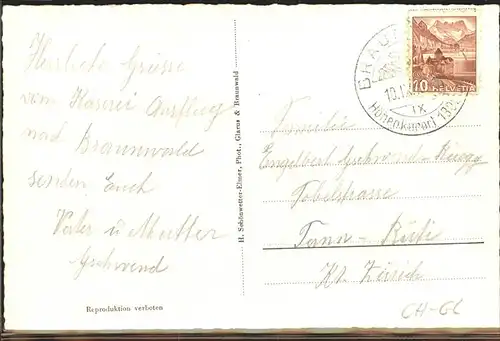 Herzliche Grüsse
vom Käserei Ausflug
nach Braunwald
senden Euch
Vater u Mutter
Gschwend
Reproduktion verboten
H. Schönwetter-Elmer, Phot., Glarus & Braunwald
BRAUN
10.IX
IX
Höhenkurort 130
10 HELVETIA
Familie
Engelbert Gschwend-Rüegg
Tobelstrasse
Tann-Rüti
Kt. Zürich
CH-GL